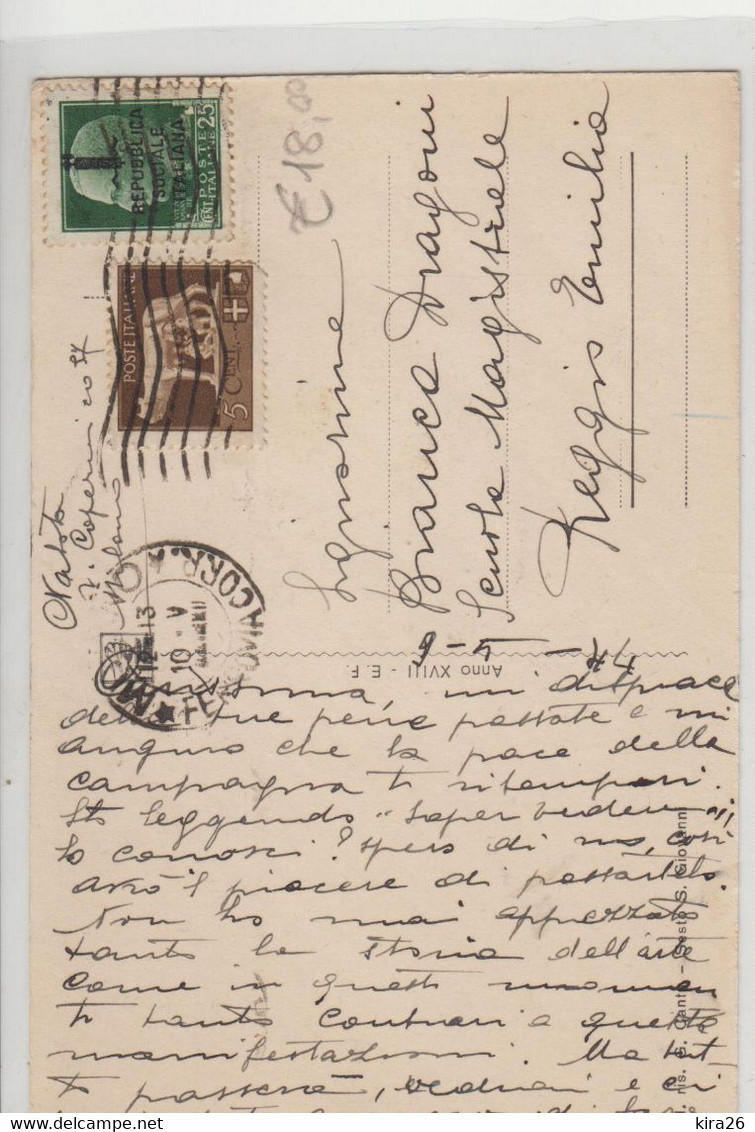 € 18,00
REPUBBLICA
SOCIALE
ITALIANA
POSTE
ITALIANE
CENT. 25
POSTE ITALIANE
5 CENT.
Milano
MI
FERROVIA CORR. A
12-13
10 V
Signorina
Bianca Dragoni
Scuola Magistrale
Reggio Emilia
9-5-44
Anno XVIII - E. F.
mi dispiace
delle tue pene passate e mi
auguro che la pace della
campagna ti ritempri.
Sto leggendo "Saper vedere",
lo conosci? Spero di no, così
avrò il piacere di
Non ho mai apprezzato
tanto la storia dell'arte
come in questi momen
ti tanto contrari a queste
manifestazioni. Ma tut
to passerà, vedrai e ci
Sesto S. Giovanni
kira26